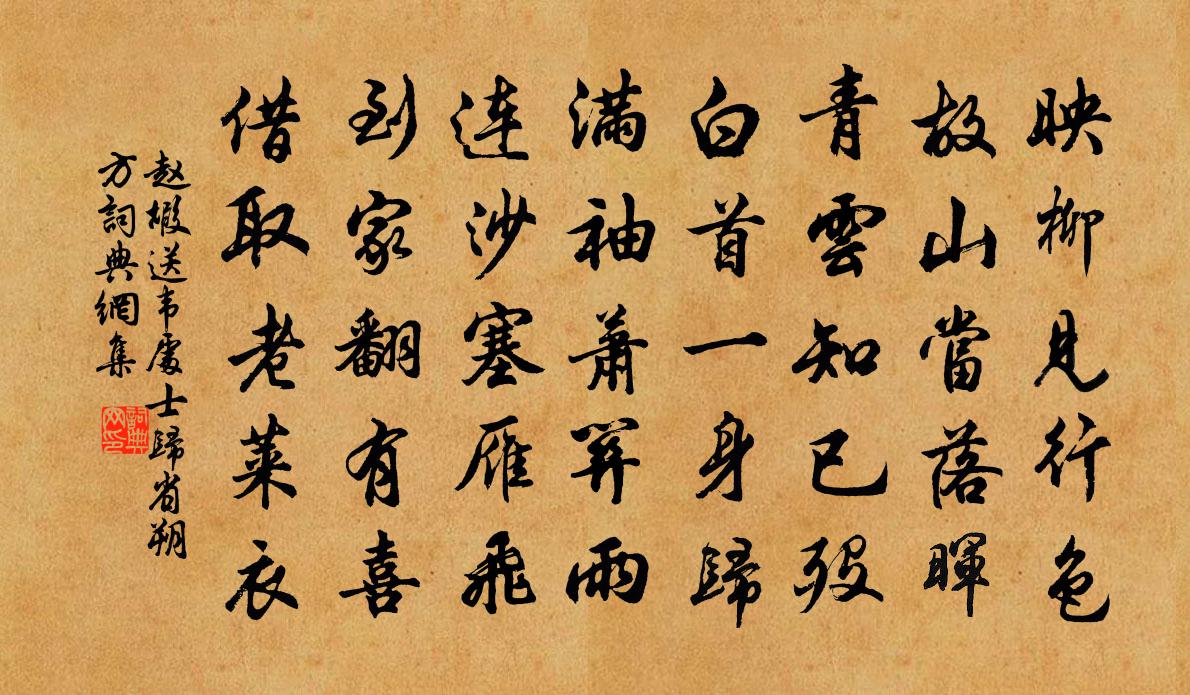 映柳見行色
故山當落暉
青雲知已歿
白首一身歸
滿袖蕭關雨
連沙塞雁飛
到家翻有喜
借取老萊衣
赵嘏送韦處士歸省朔
方詞典網集
詞典
网印